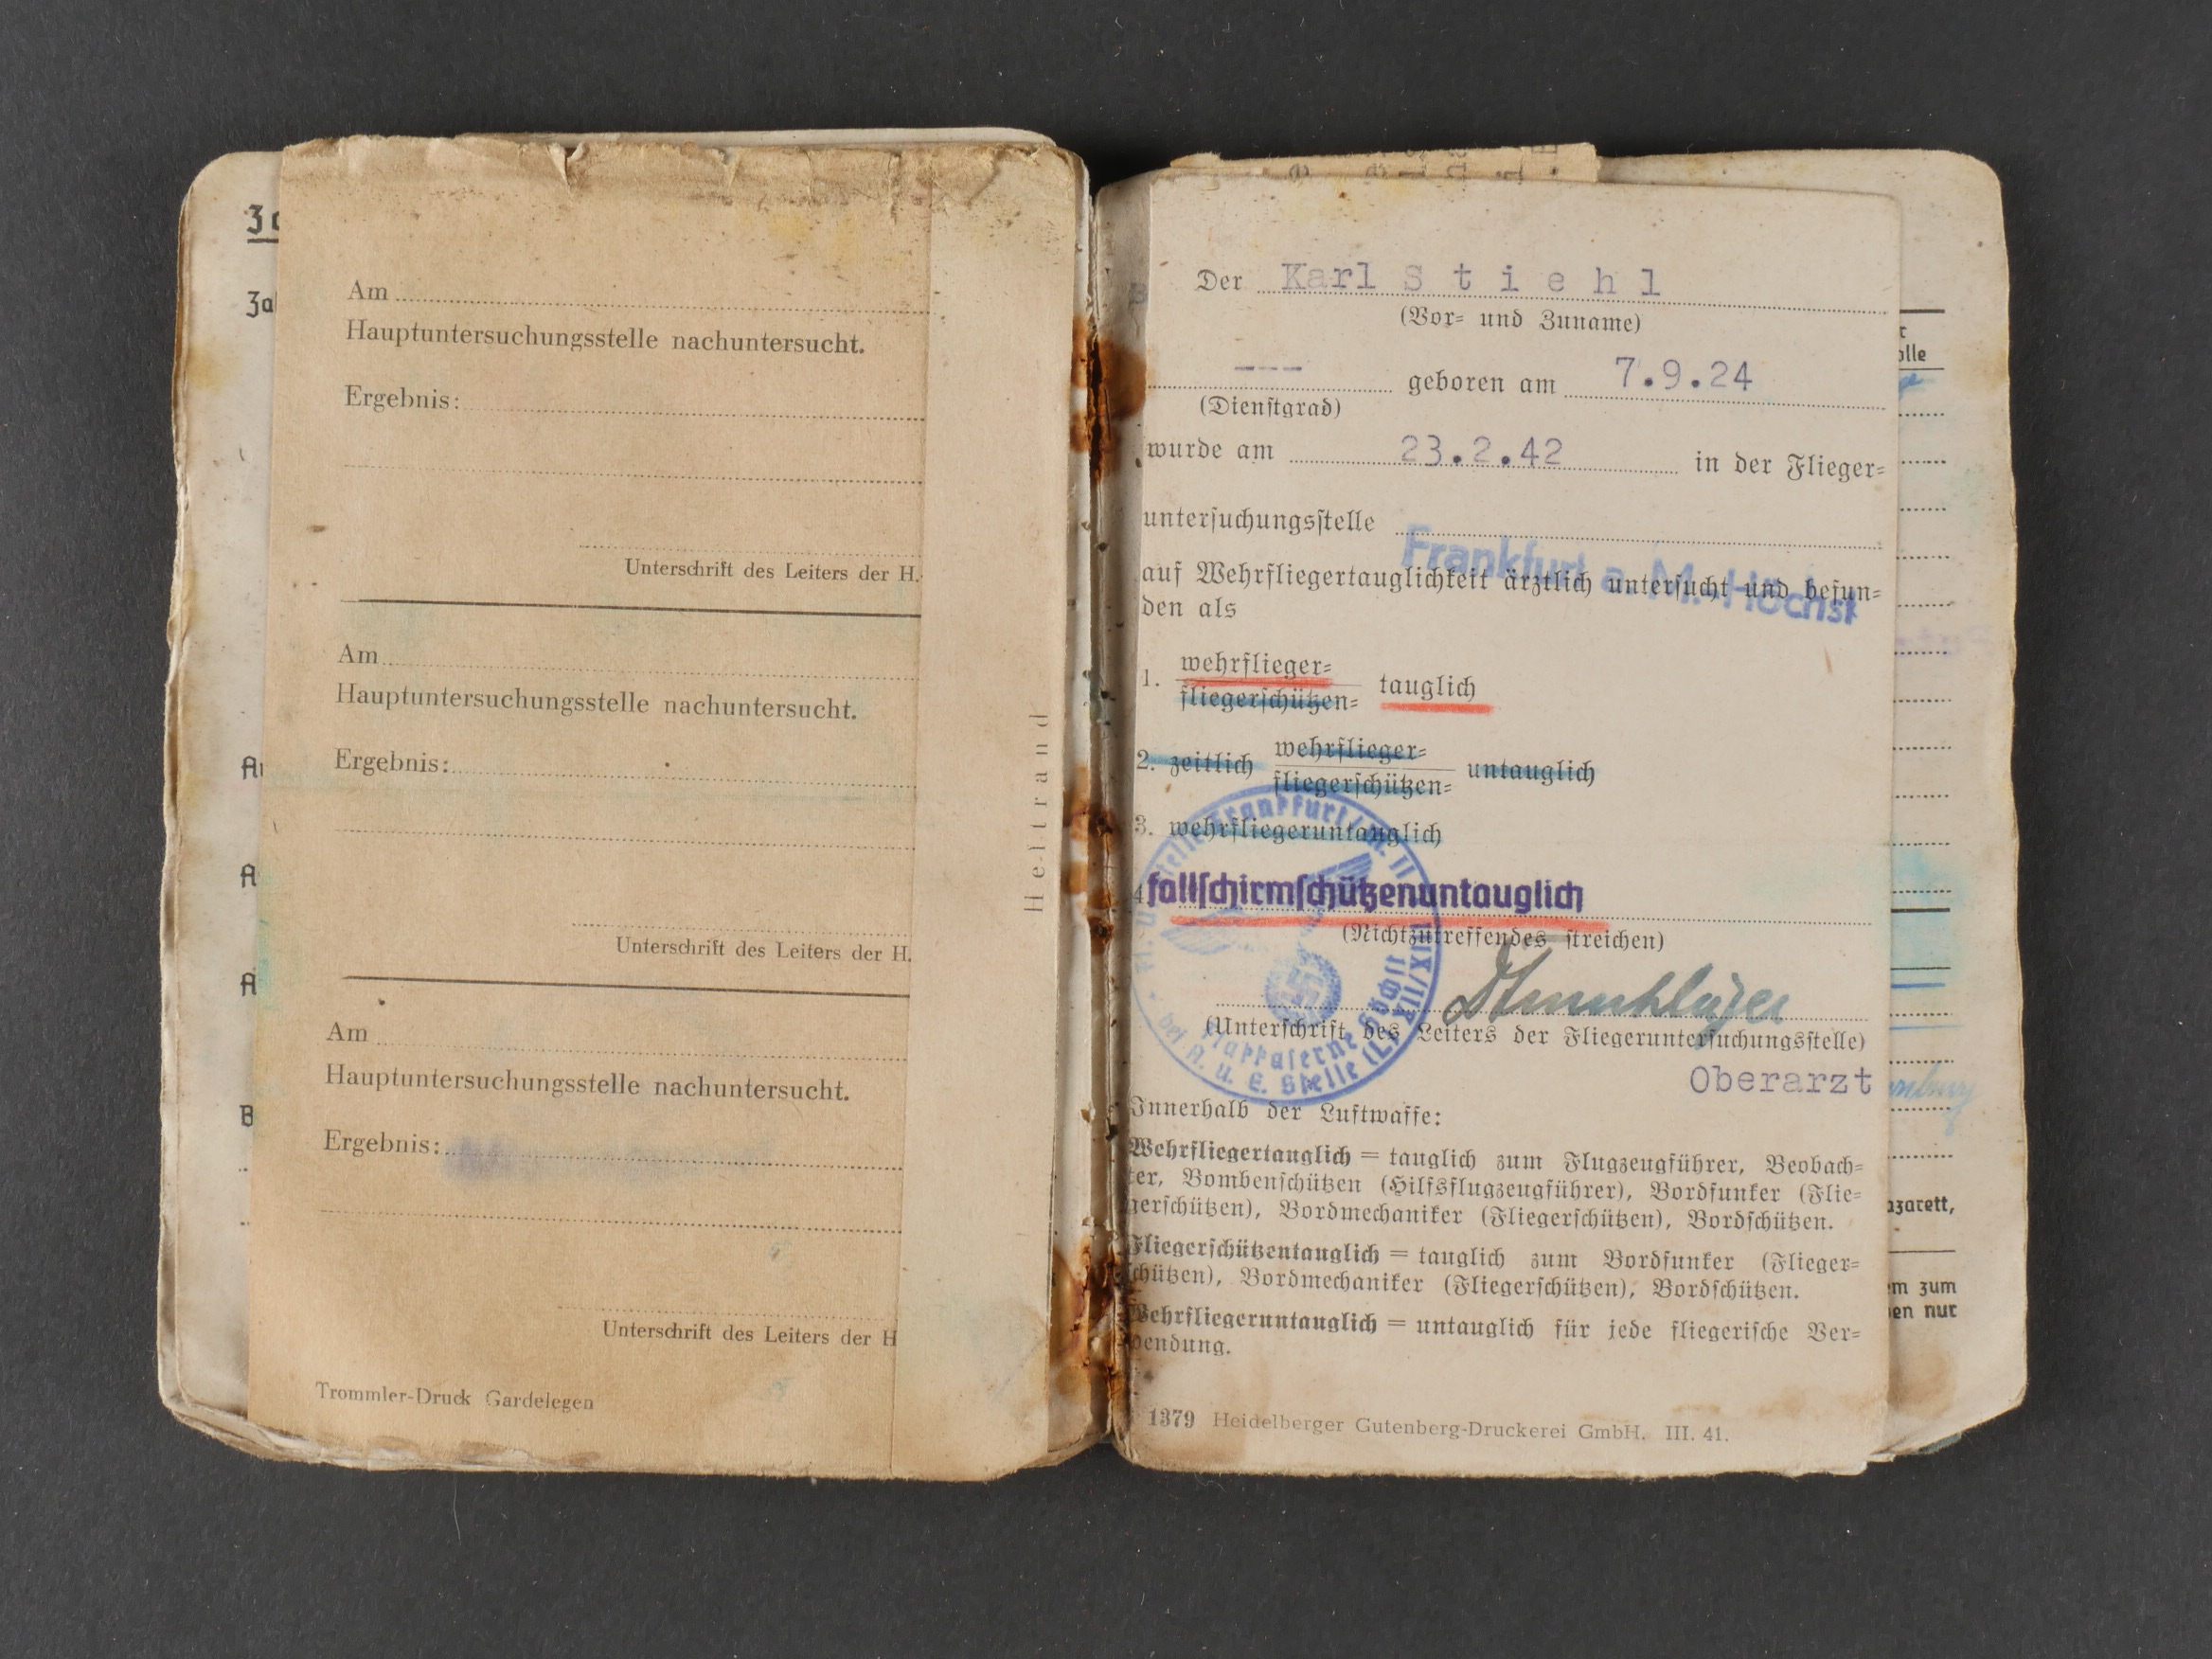 Am
Hauptuntersuchungsstelle nachuntersucht.
Ergebnis:
Unterschrift des Leiters der H.
Am
Hauptuntersuchungsstelle nachuntersucht.
Ergebnis:
Unterschrift des Leiters der H.
Am
Hauptuntersuchungsstelle nachuntersucht.
Ergebnis:
Unterschrift des Leiters der H
Trommler-Druck Gardelegen
Heftrand
Der Karl Stiehl
(Vor- und Zuname)
--- geboren am 7.9.24
(Dienstgrad)
wurde am 23.2.42 in der Flieger-
untersuchungsstelle
Frankfurt a. M.-Höchst
auf Wehrfliegertauglichkeit ärztlich untersucht und befun-
den als
1. wehrflieger-
fliegerschützen- tauglich
2. zeitlich wehrflieger-
fliegerschützen- untauglich
3. wehrfliegeruntauglich
4. fallschirmschützenuntauglich
(Nichtzutreffendes streichen)
(Unterschrift des Leiters der Fliegeruntersuchungsstelle)
Oberarzt
Innerhalb der Luftwaffe:
Wehrfliegertauglich = tauglich zum Flugzeugführer, Beobach-
ter, Bombenschützen (Hilfsflugzeugführer), Bordfunker (Flie-
gerschützen), Bordmechaniker (Fliegerschützen), Bordschützen.
Fliegerschützentauglich = tauglich zum Bordfunker (Flieger-
schützen), Bordmechaniker (Fliegerschützen), Bordschützen.
Wehrfliegeruntauglich = untauglich für jede fliegerische Ver-
wendung.
1379 Heidelberger Gutenberg-Druckerei GmbH. III. 41.